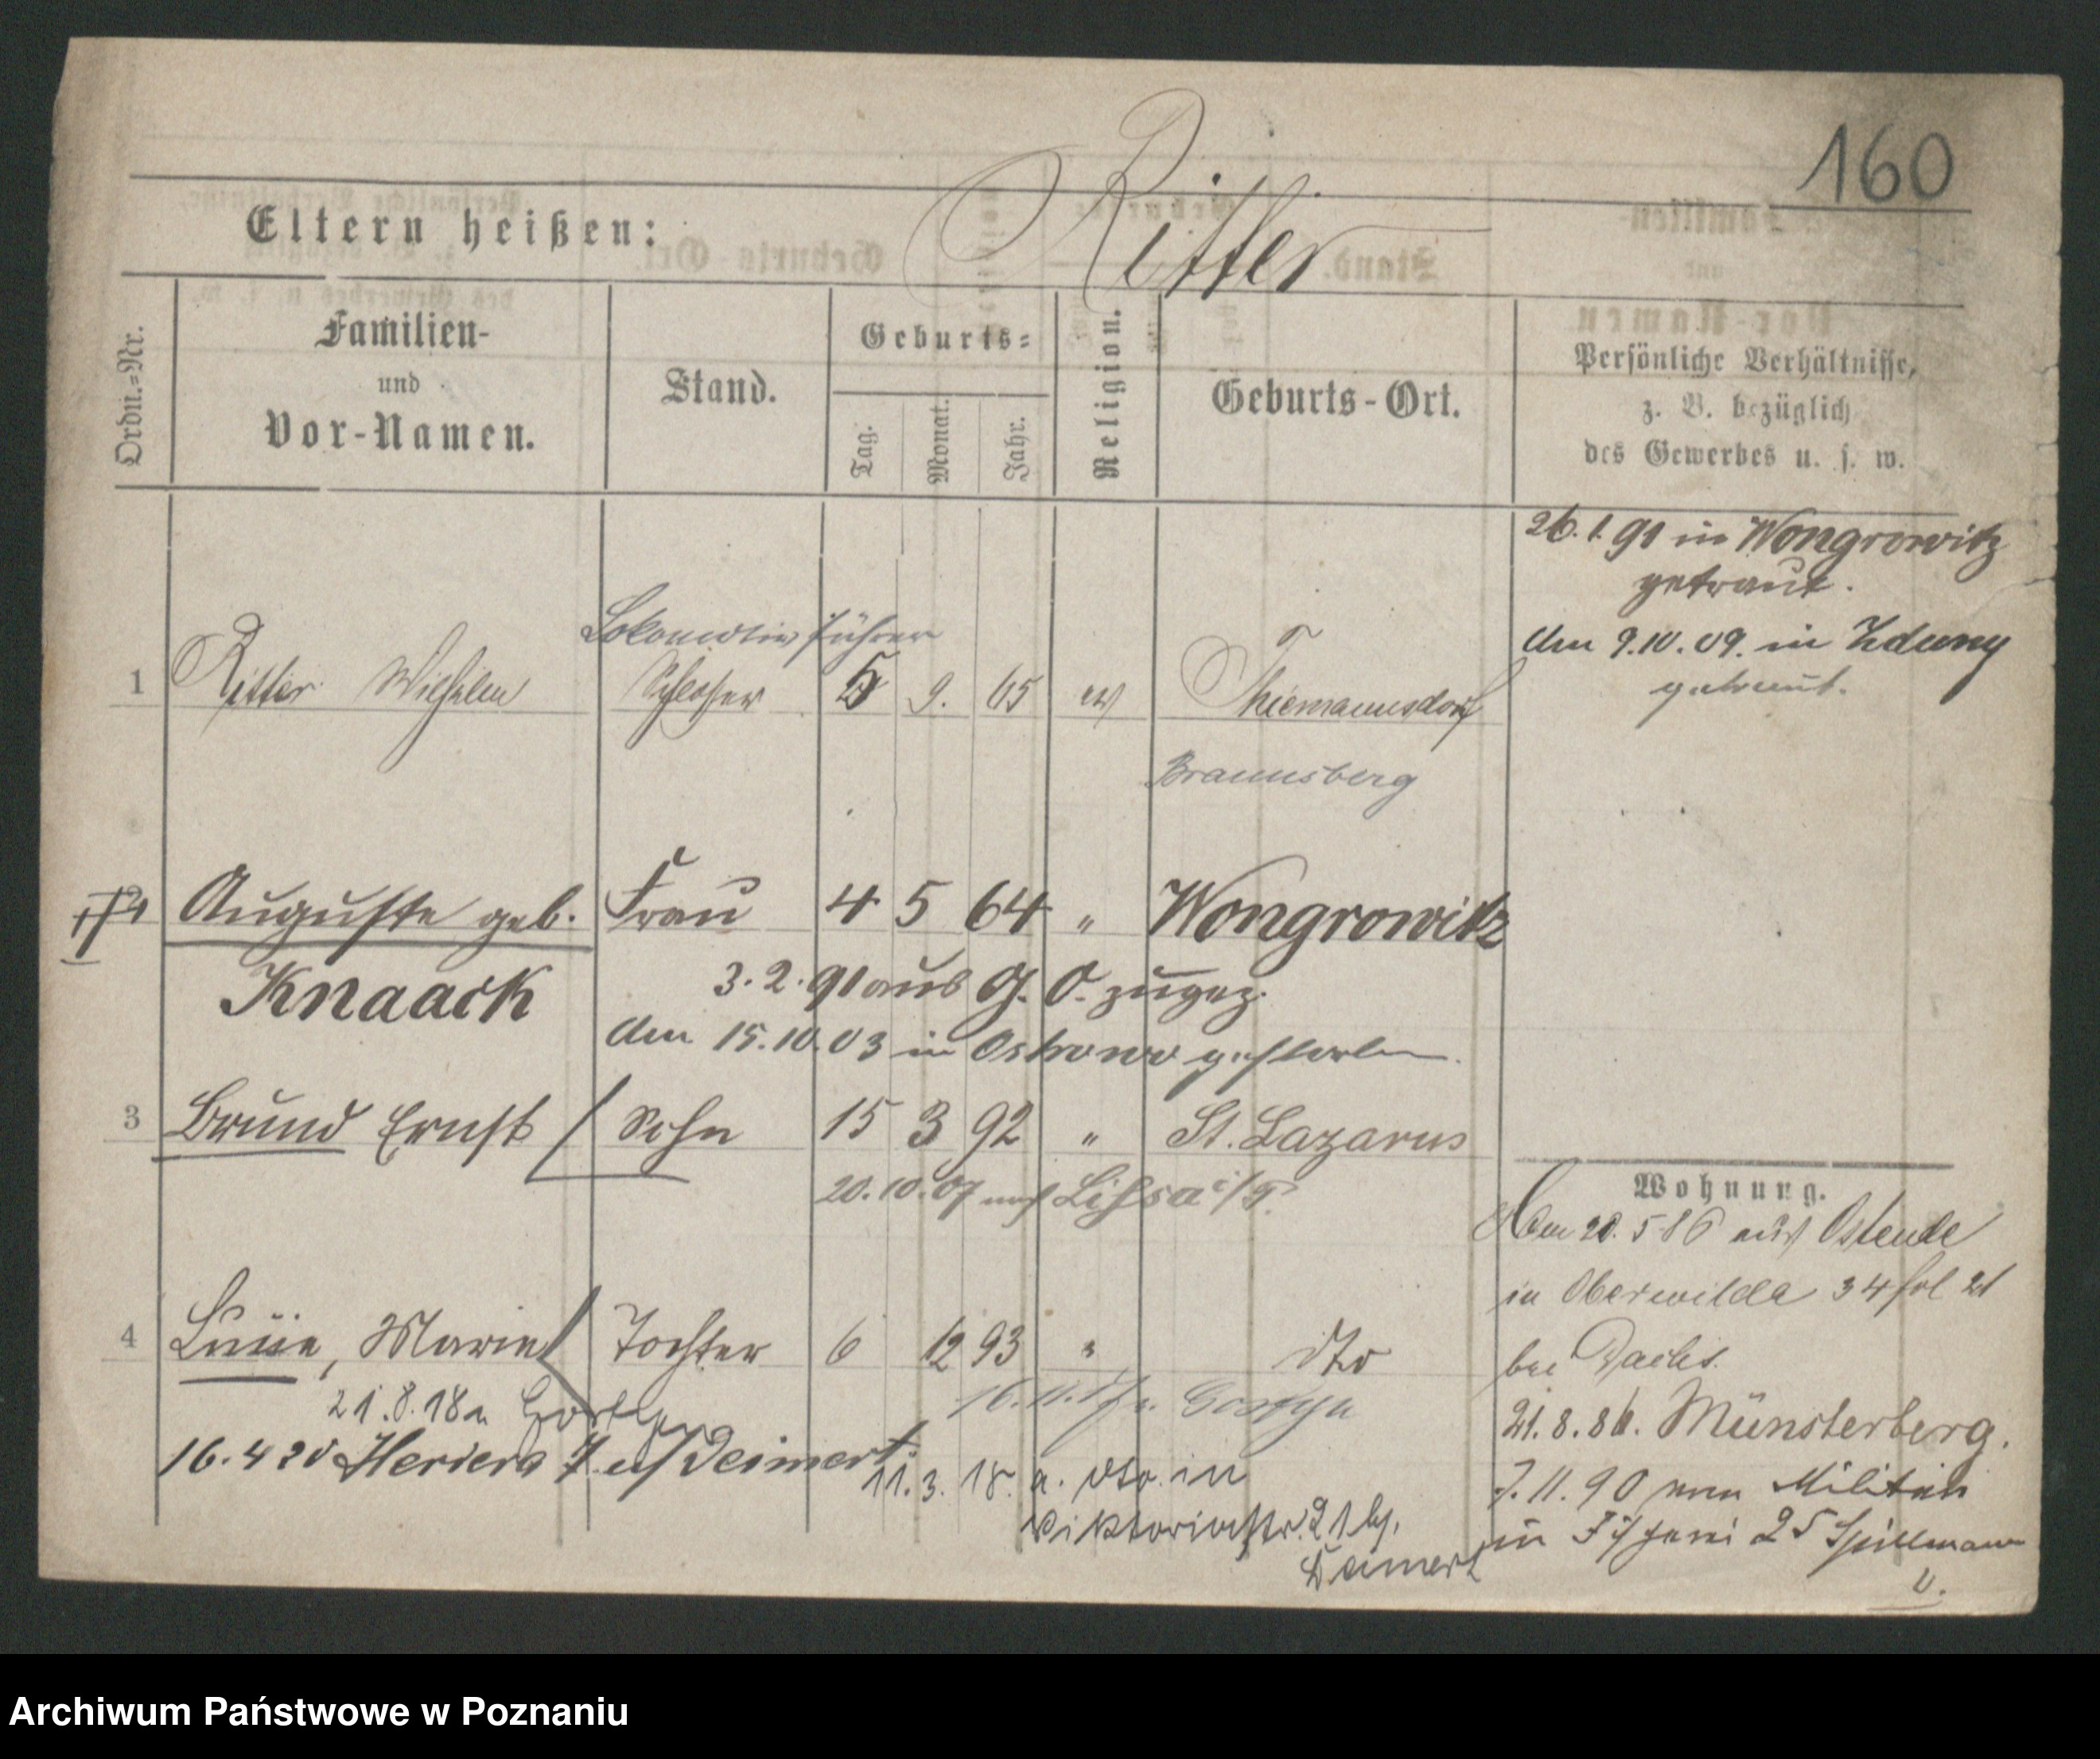 160
Eltern heißen: Ritter
Ordn.=Nr.
Familien-
und
Vor-Namen.
Stand.
Geburts=
Tag.
Monat.
Jahr.
Religion.
Geburts-Ort.
Persönliche Verhältnisse,
z. B. bezüglich
des Gewerbes u. s. w.
26. 1. 91 in Wongrowitz
getraut.
den 9.10.09. in Zduny
getraut.
Lokomotivführer
1 Ritter Wilhelm Schlosser 5 9. 65 ev Thiemannsdorf
Braunsberg
Auguste geb. Frau 4 5 64 " Wongrowitz
Knaack
3. 2. 91 aus G. O. zugez.
den 15.10.03 in Ostrowo gestorben.
3 Bruno Ernst Sohn 15 3 92 " St. Lazarus
20.10.07 nach Lissa i/P.
4 Luise, Marie Tochter 6 12 93 " dto
21.8.18 a. Gostyn
16. 11. Gostyn
16. 4 20
11. 3. 18. a. dto. in
Viktoriastr. 21 bj.
Deimert
Wohnung.
20. 5 86 aus Ostende
in Oberwilda 34 fol 21
bei
21. 8. 86. Münsterberg.
7. 11. 90 vom Militär
in 25 Spillmann
v.
Archiwum Państwowe w Poznaniu